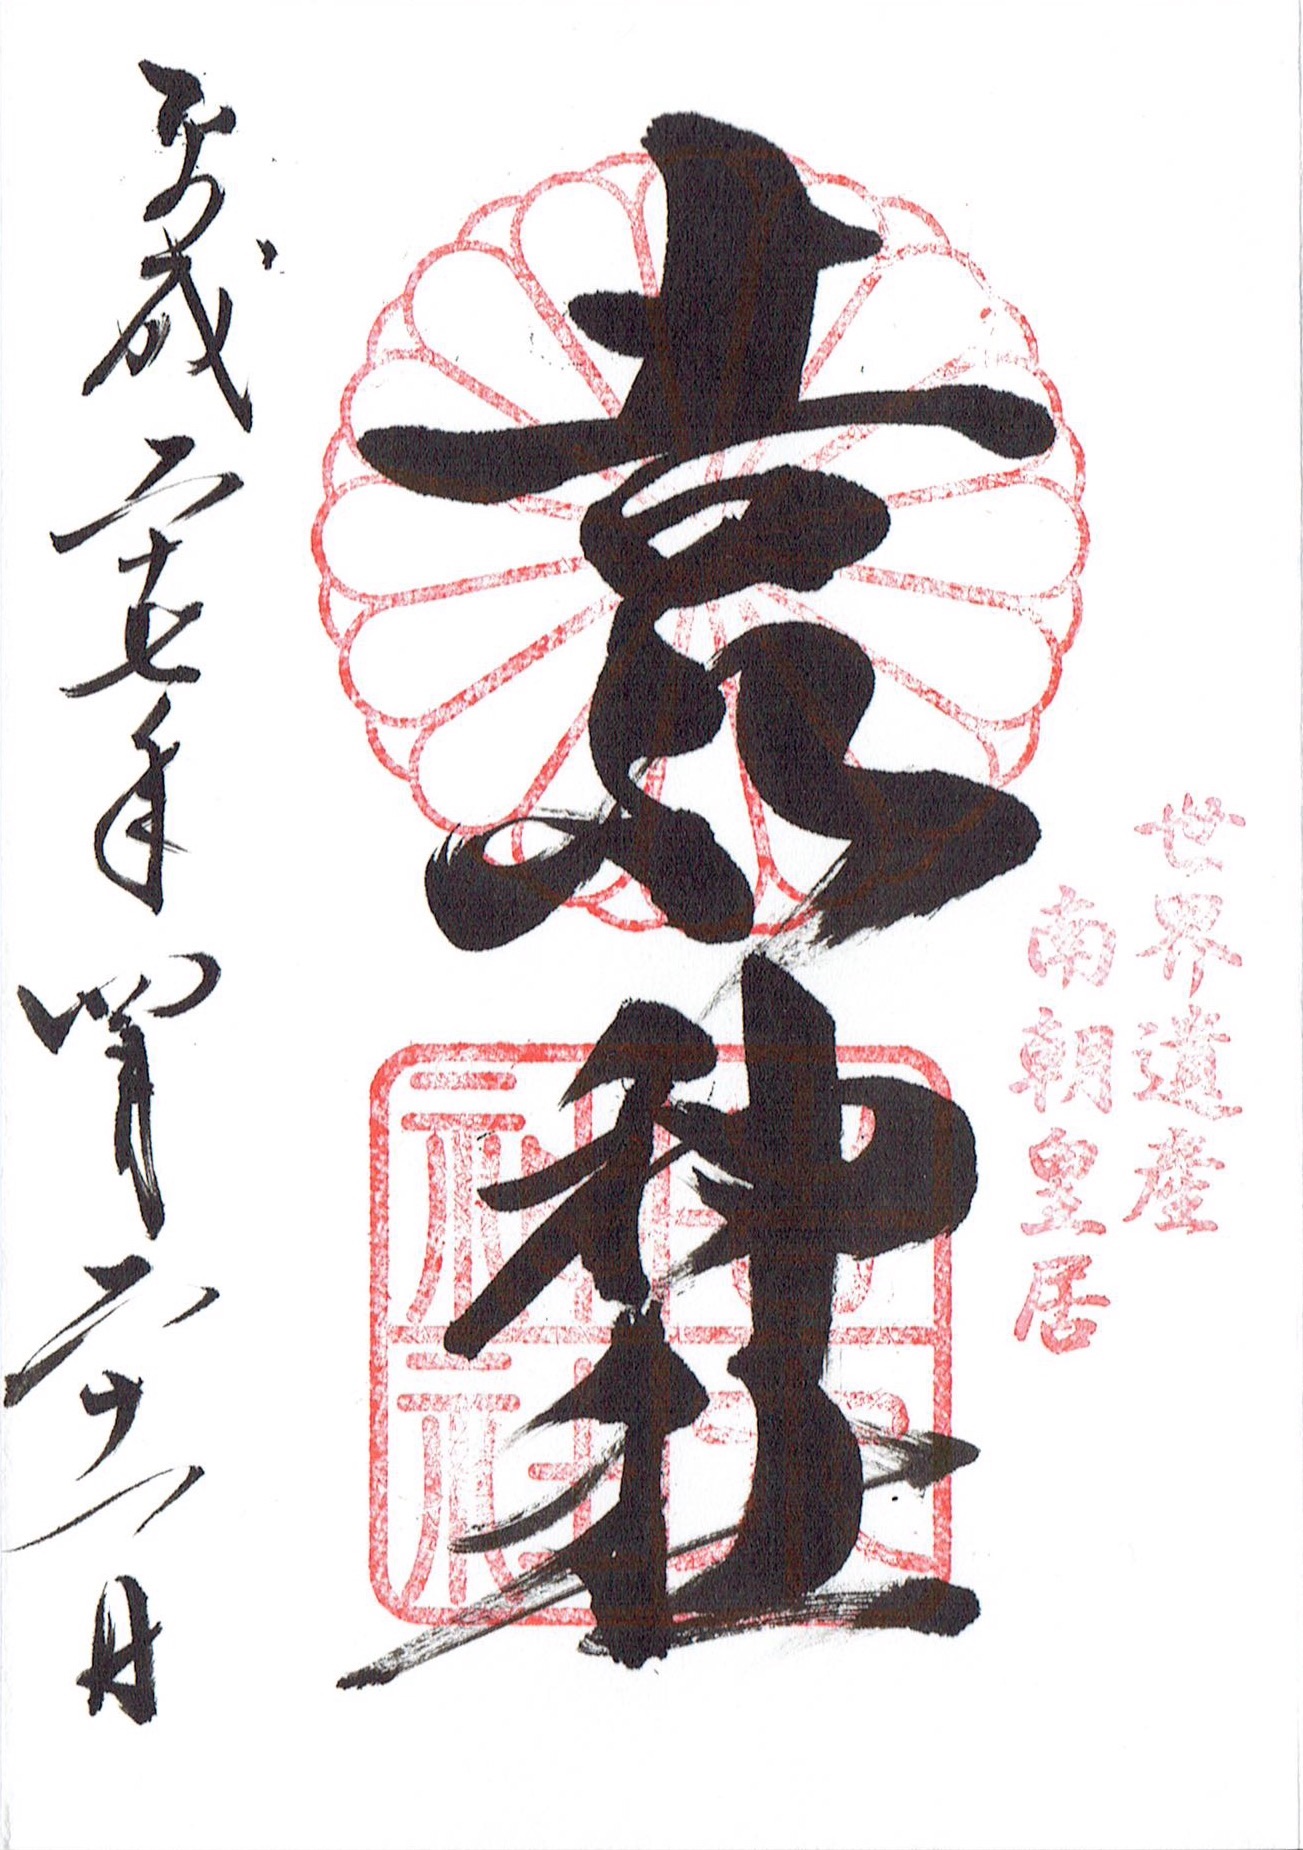 世界遺産
南朝皇居
吉水神社
神社
平成二十七年四月二十二日